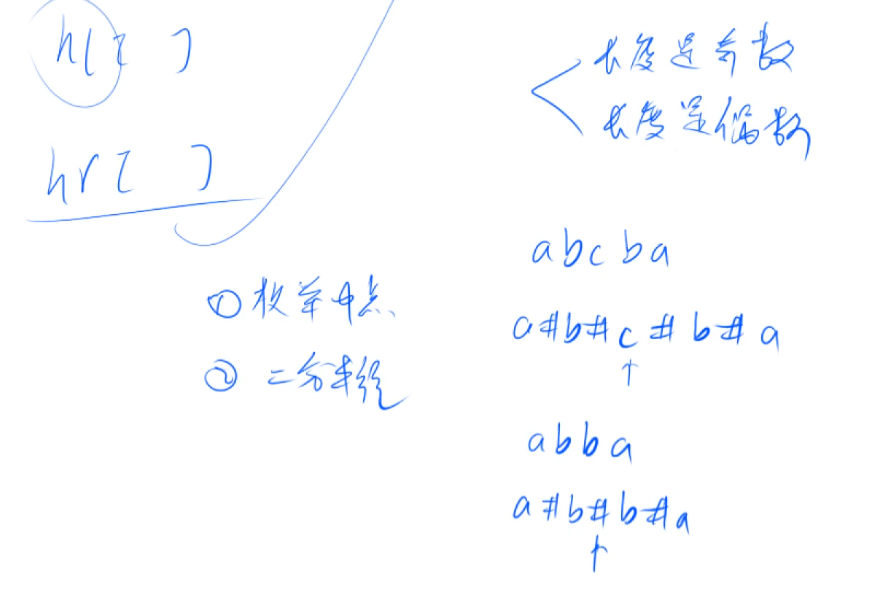 hl[ ]
hr[ ]
长度是奇数
长度是偶数
① 枚举中点、
② 二分半径
abcba
a#b#c#b#a
↑
abba
a#b#b#a
↑